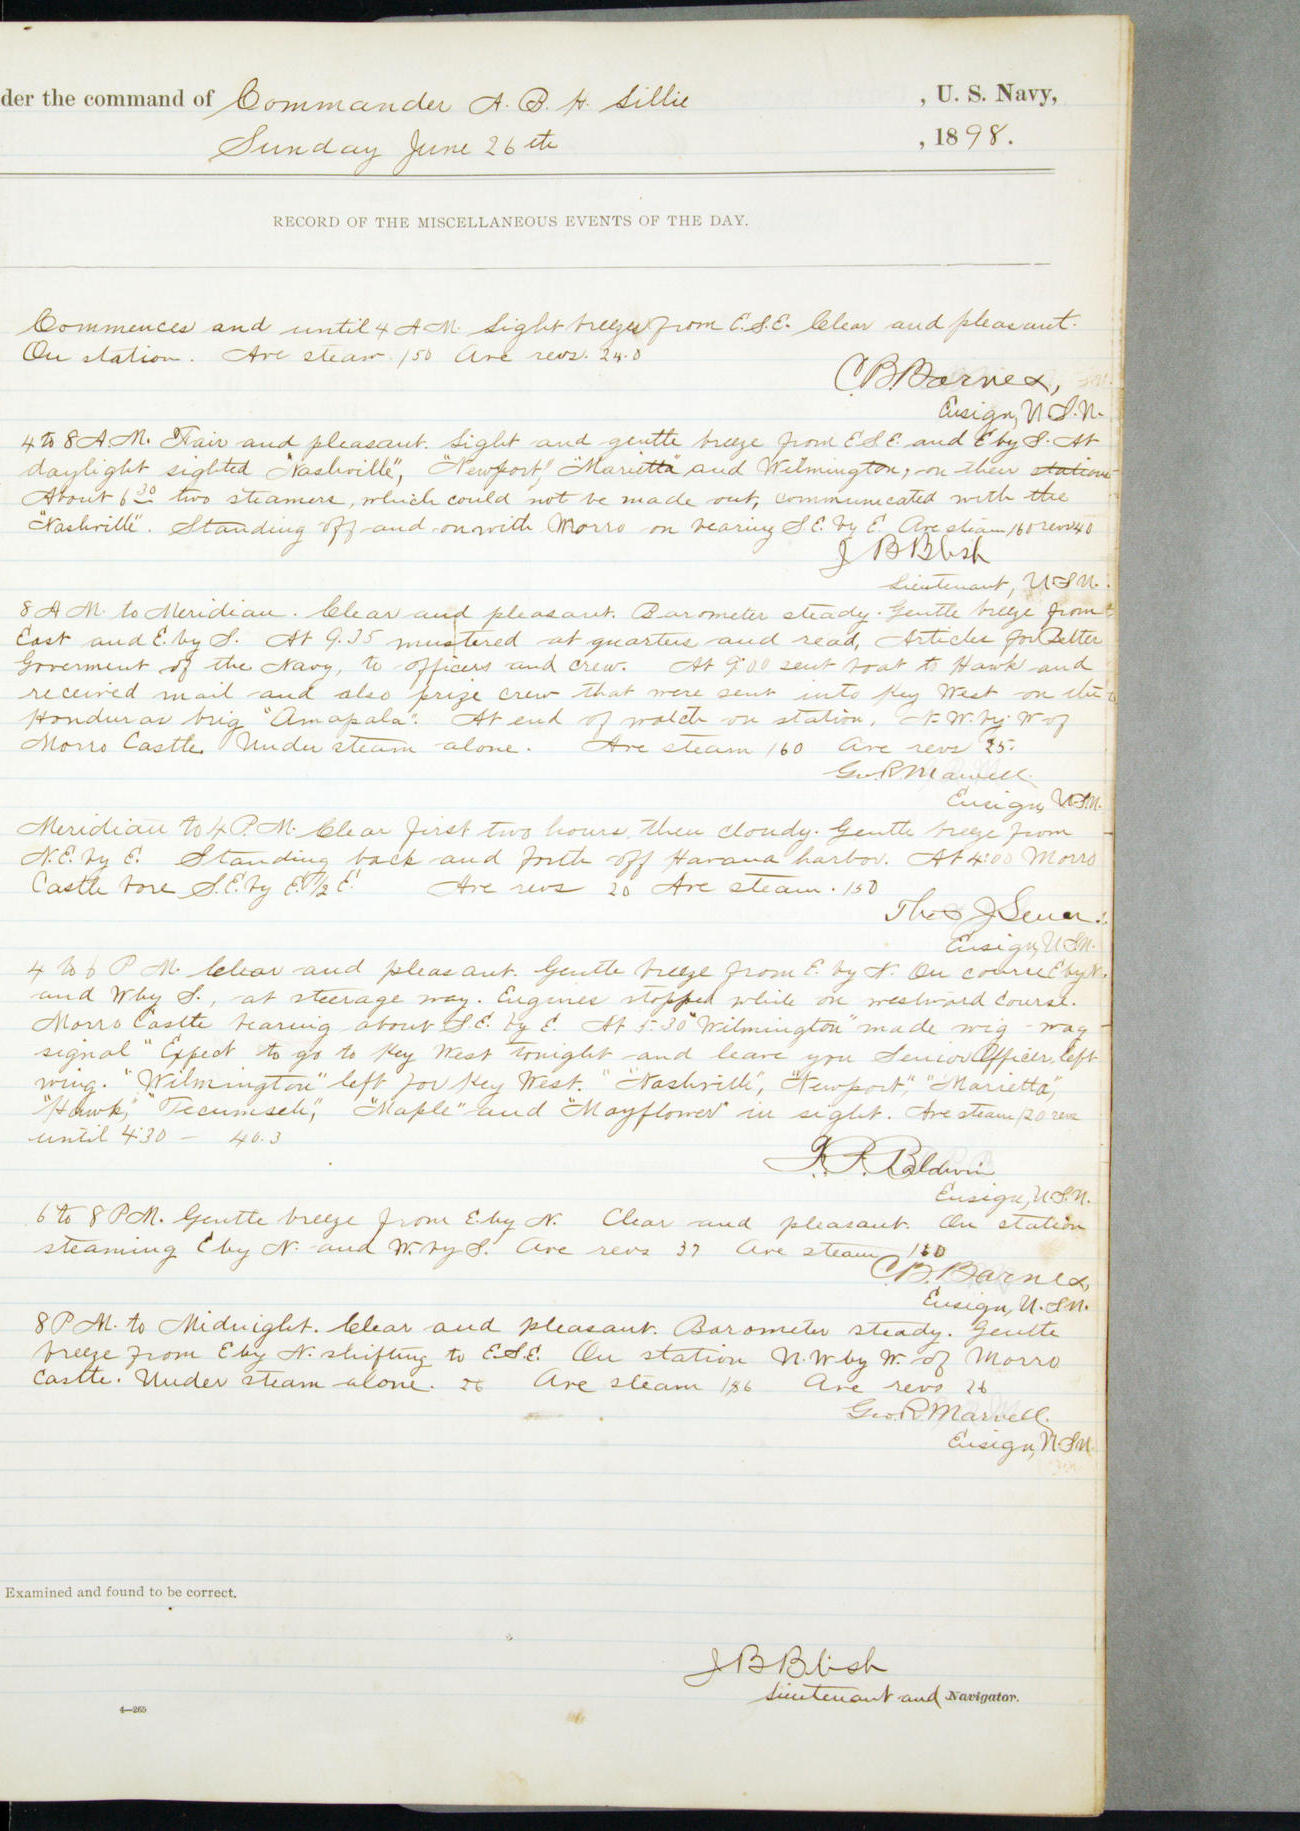 der the command of Commander A. B. H. Lillie , U. S. Navy,
Sunday June 26th , 1898.
RECORD OF THE MISCELLANEOUS EVENTS OF THE DAY.
Commences and until 4 A.M. Light breezes from E.S.E. Clear and pleasant.
On station. Ave steam 150 Ave revs. 24.0
C.B. Barnes,
Ensign, U.S.N.
4 to 8 A.M. Fair and pleasant. Light and gentle breeze from E.S.E. and E by S. At
daylight sighted "Nashville", "Newport", "Marietta" and Wilmington, on their stations
About 6 30 two steamers, which could not be made out, communicated with the
"Nashville". Standing off and on with Morro on bearing S.E. by E. Ave steam 160 revs 40
J B Blish
Lieutenant, U.S.N.
8 A.M. to Meridian. Clear and pleasant. Barometer steady. Gentle breeze from
East and E. by S. At 9.35 mustered at quarters and read, Articles for Better
Goverment of the Navy, to officers and crew. At 9:00 sent boat to Hawk and
received mail and also prize crew that were sent into Key West on the
Honduras brig "Amapala". At end of watch on station, N.W. by W of
Morro Castle. Under steam alone. Ave steam 160 Ave revs 25.
Geo. R. Marvell
Ensign, U.S.N.
Meridian to 4 P.M. Clear first two hours, then cloudy. Gentle breeze from
N.E. by E. Standing back and forth off Havana harbor. At 4:00 Morro
Castle bore S.E. by E. 1/2 E. Ave revs 20 Ave steam. 150
Thos J Senn
Ensign, U.S.N.
4 to 6 P.M. Clear and pleasant. Gentle breeze from E. by N. On course E by N.
and W by S., at steerage way. Engines stopped while on westward course.
Morro Castle bearing about S.E. by E. At 5-30 "Wilmington" made wig-wag
signal "Expect to go to Key West tonight and leave you Senior Officer, left
wing." "Wilmington" left for Key West. "Nashville", "Newport", "Marietta",
"Hawk," "Tecumseh", "Maple" and "Mayflower" in sight. Ave steam 120 revs
until 4:30 — 40.3
F. P. Baldwin
Ensign, U.S.N.
6 to 8 P.M. Gentle breeze from E. by N. Clear and pleasant. On station
steaming E by N. and W. by S. Ave revs 37 Ave steam 130
C.B. Barnes,
Ensign, U.S.N.
8 P.M. to Midnight. Clear and pleasant. Barometer steady. Gentle
breeze from E by N. shifting to E.S.E. On station N.W by W. of Morro
Castle. Under steam alone. Ave steam 186 Ave revs 26
Geo. R. Marvell.
Ensign, U.S.N.
Examined and found to be correct.
J B Blish
Lieutenant and Navigator.
4—265